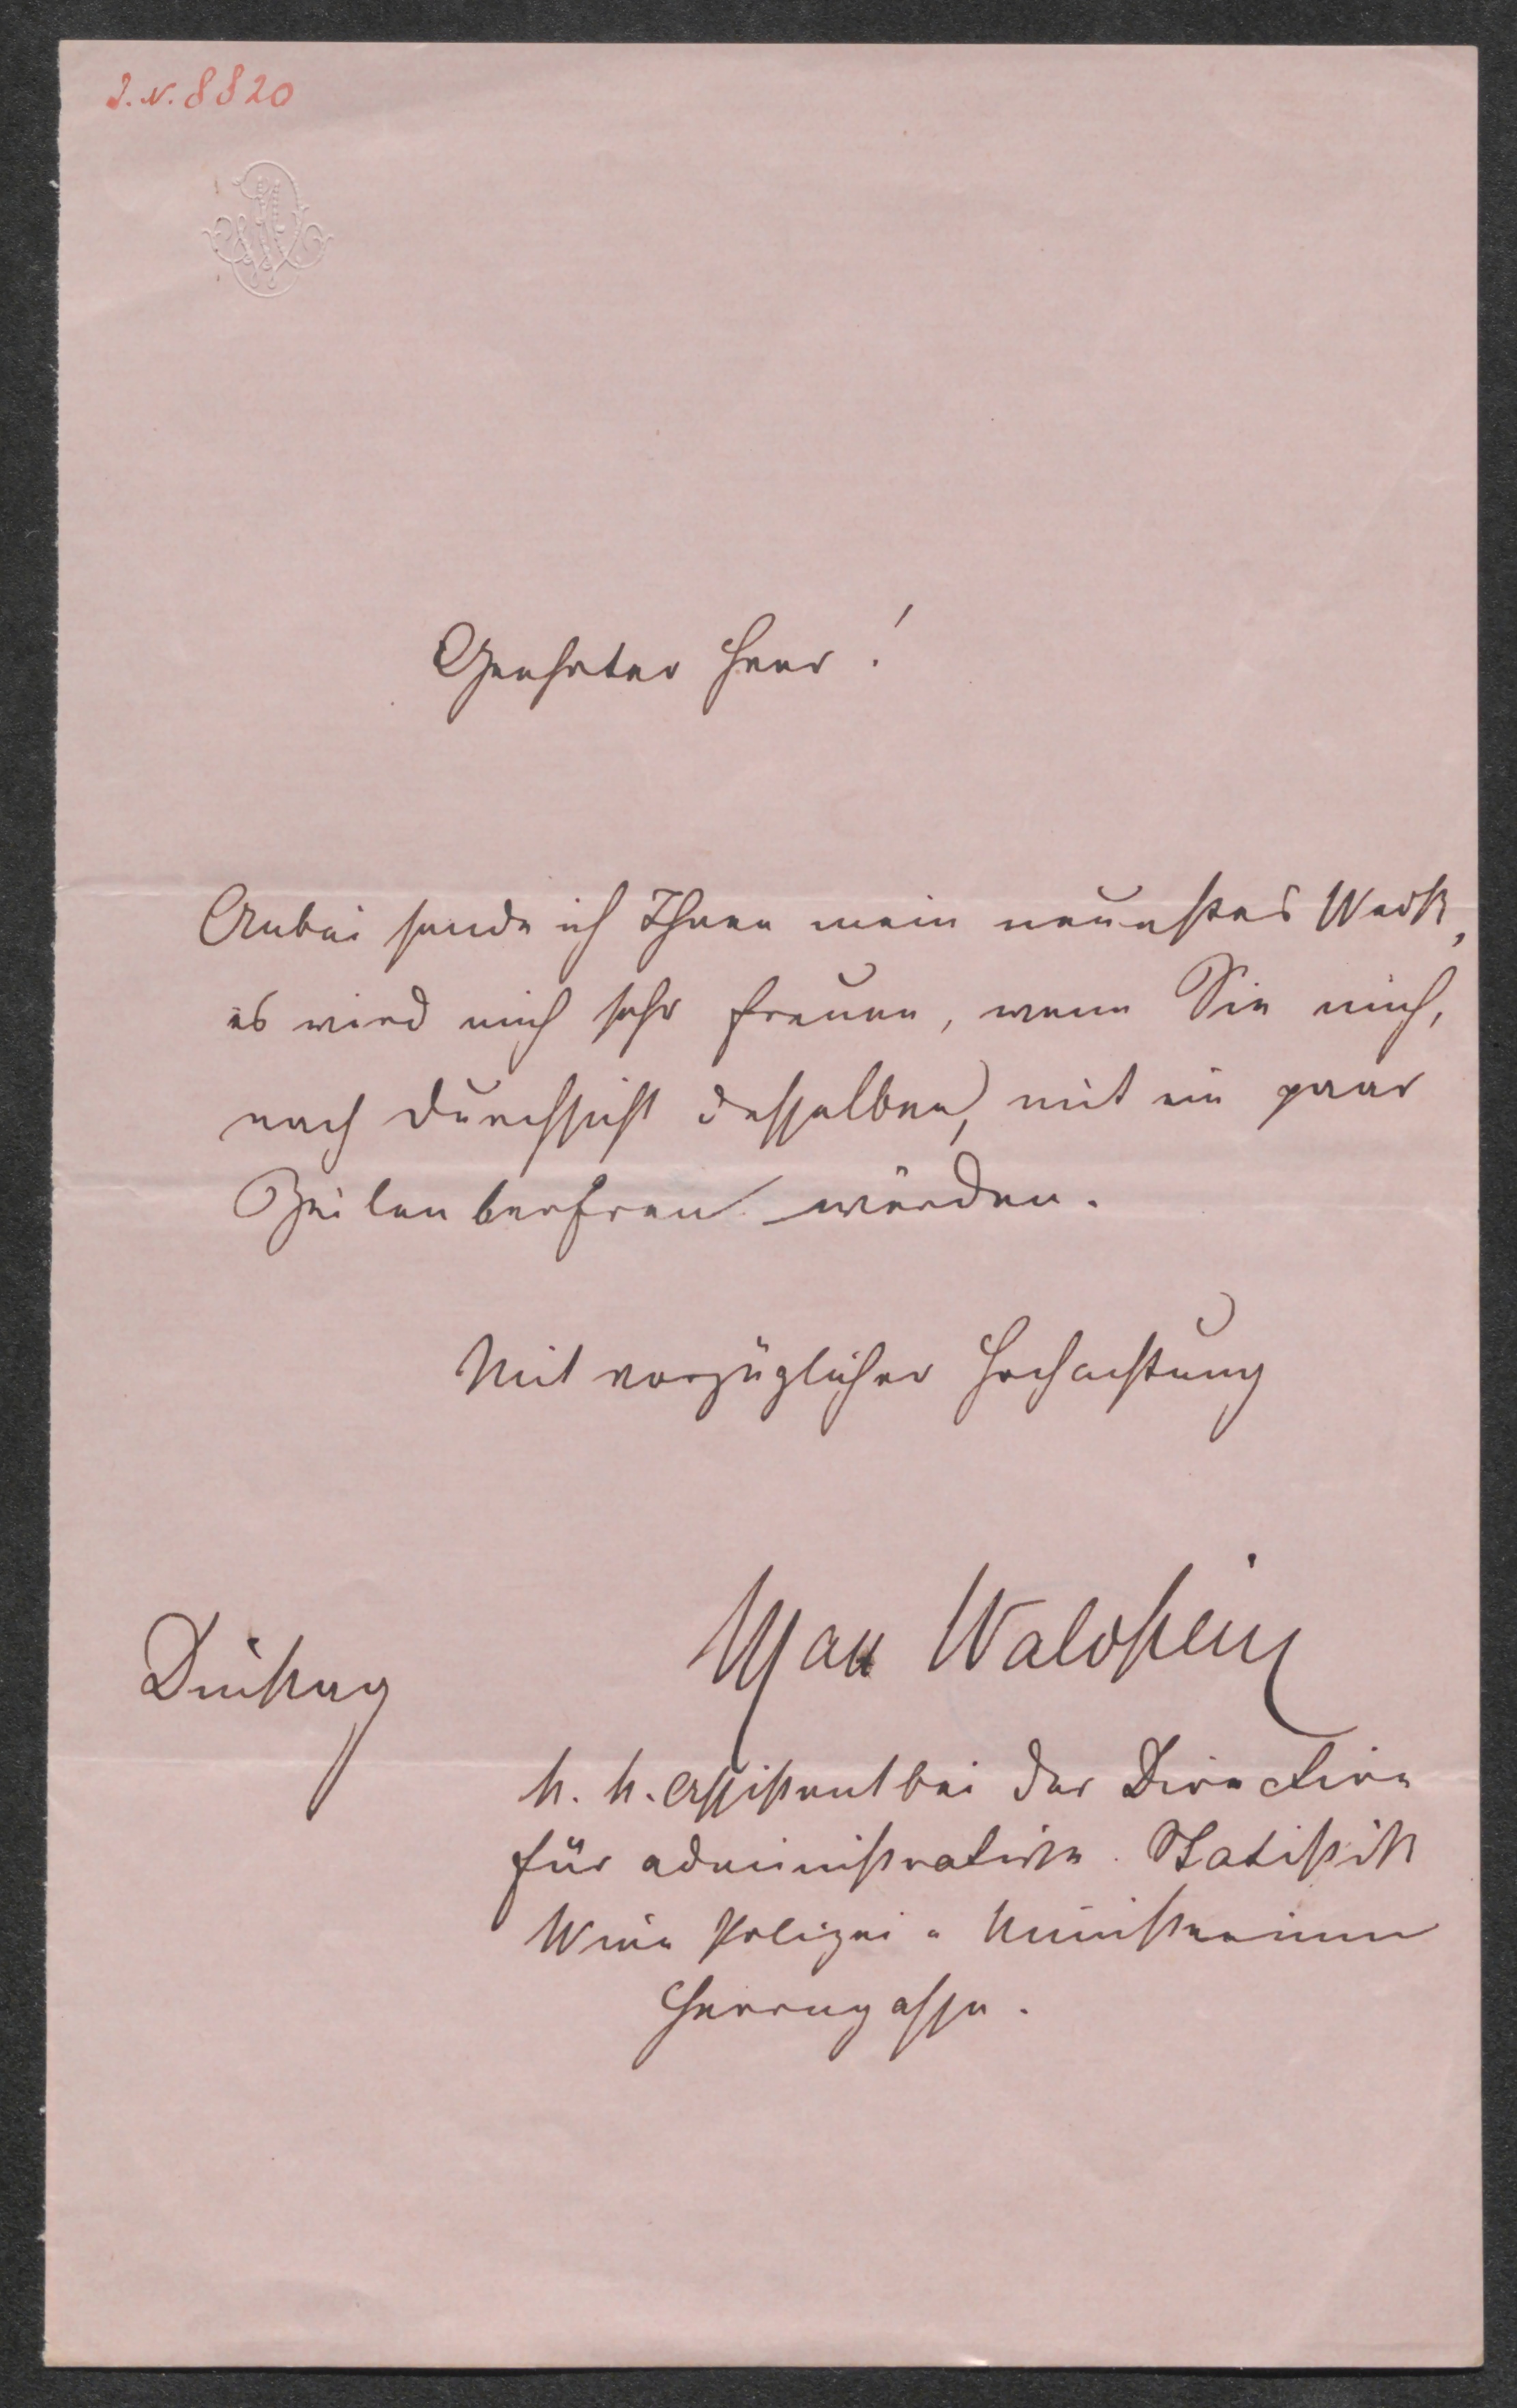 J.N. 8820
Geehrter Herr!
Anbei sende ich Ihnen mein neuestes Werk,
es wird mich sehr freuen, wenn Sie mich,
nach Durchsicht desselben, mit ein paar
Zeilen beehren würden.
Mit vorzüglicher Hochachtung
Max Waldstein
Dienstag
k. k. Assistent bei der Direction
für administrative Statistik
Wien Polizei-Ministerium
Herrengasse.